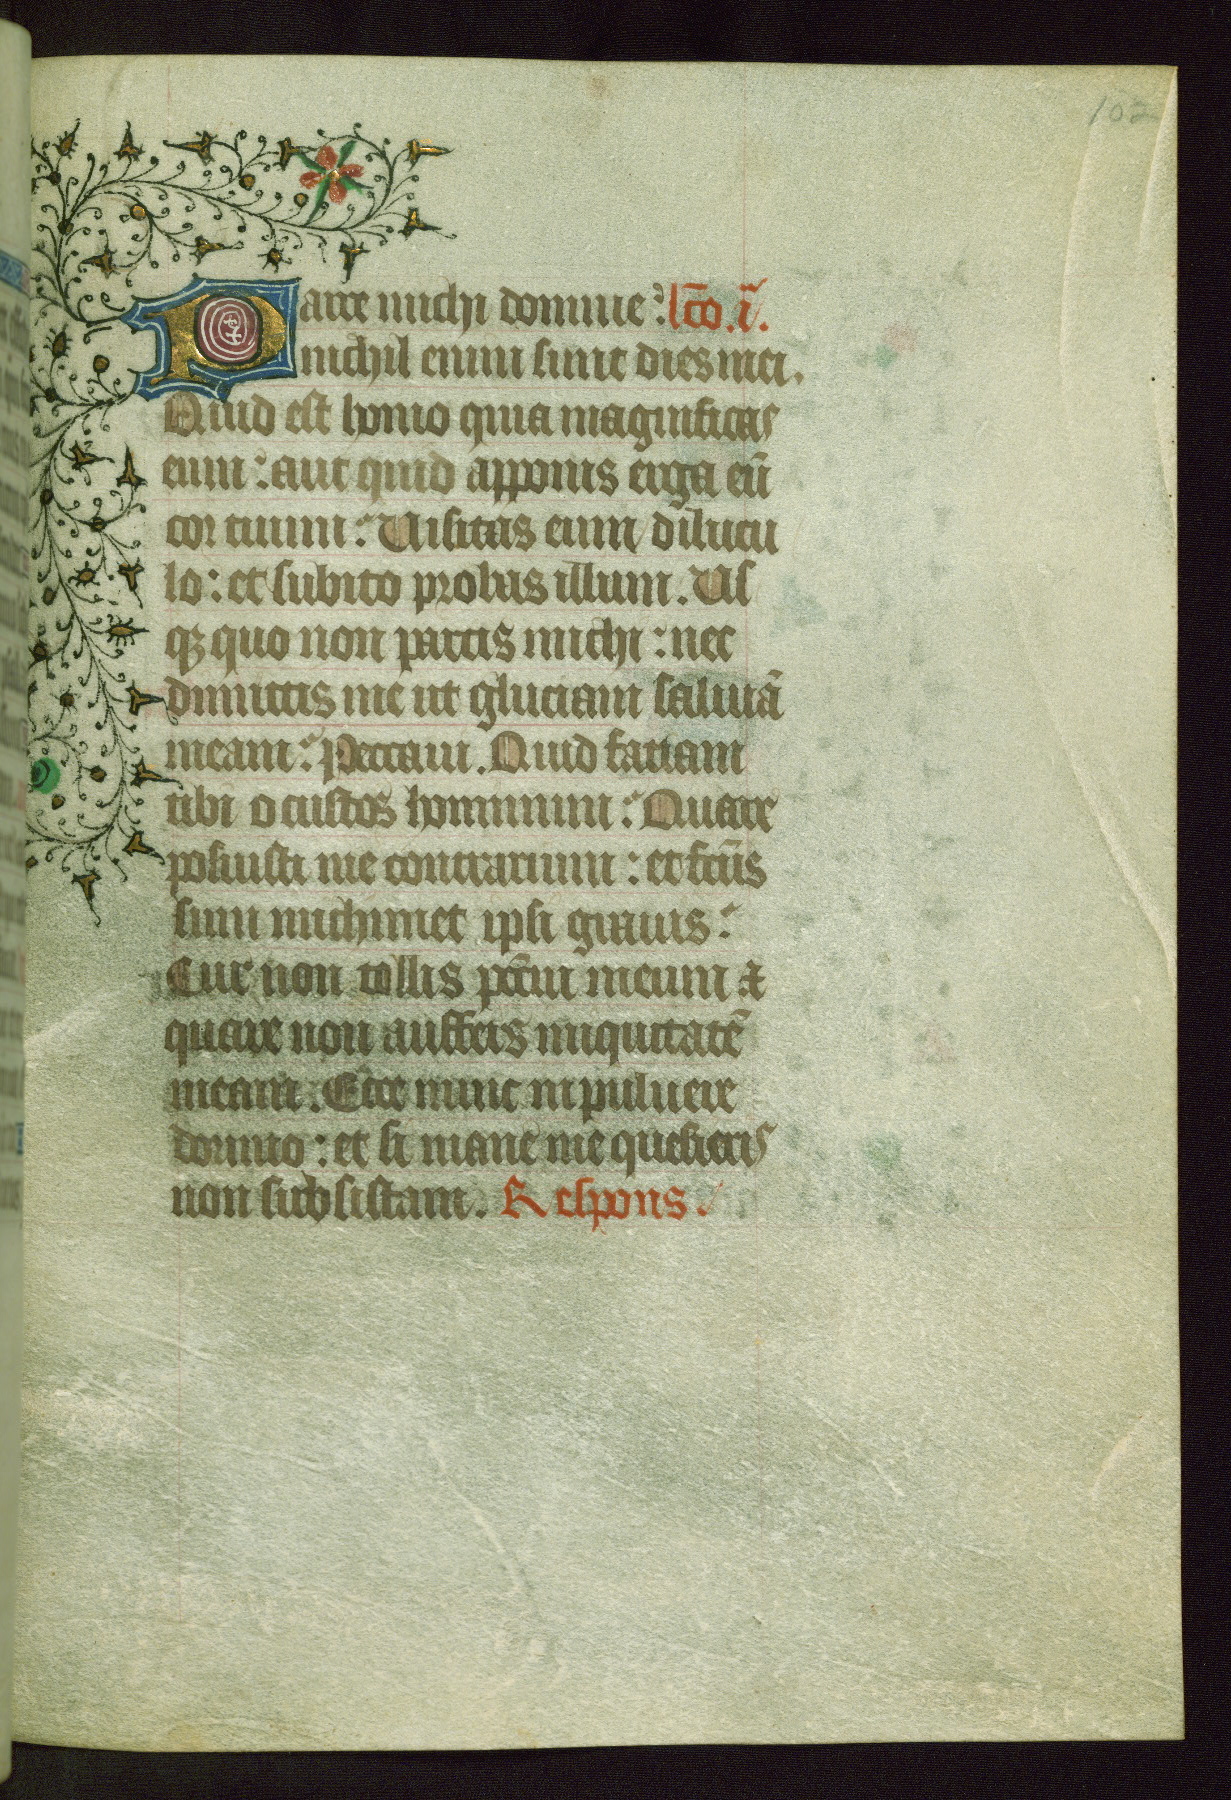 102
Parce michi domine: lc̄o. i.
nichil enim sunt dies mei.
Quid est homo quia magnificas
eum: aut quid apponis erga eū
cor tuum: Visitas eum dilucu
lo: et subito probas illum. Us
qꝫ quo non parcis michi: nec
dimittis me ut gluciam saliuā
meam: Peccaui. Quid faciam
tibi o custos hominum: Quare
posuisti me contrarium: et fc̄us
sum michimet ipsi grauis:
Cur non tollis pc̄cm meum &
quare non auffers iniquitatē
meam. Ecce nunc in puluere
dormio: et si mane me quesieris
non subsistam. Respons.